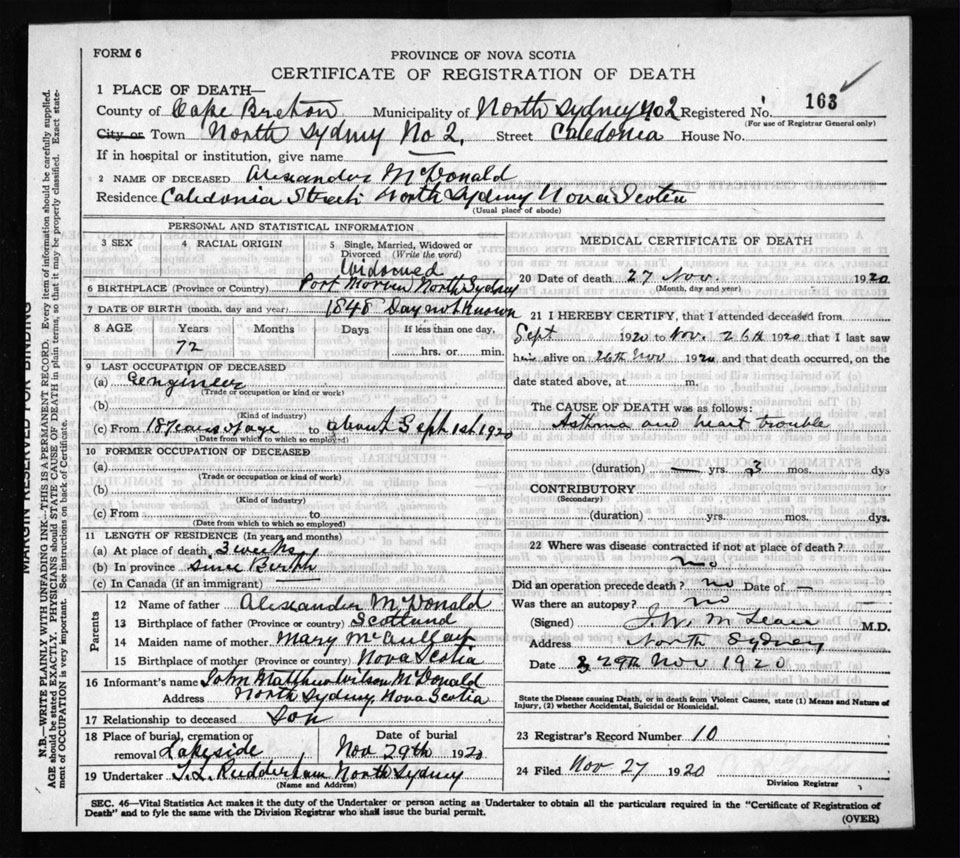 FORM 6
PROVINCE OF NOVA SCOTIA
CERTIFICATE OF REGISTRATION OF DEATH
163
1 PLACE OF DEATH—
County of Cape Breton Municipality of North Sydney No2 Registered No.
(For use of Registrar General only)
City or Town North Sydney No 2. Street Caledonia House No.
If in hospital or institution, give name
2 NAME OF DECEASED Alexander McDonald
Residence Caledonia Street North Sydney Nova Scotia
(Usual place of abode)
PERSONAL AND STATISTICAL INFORMATION
3 SEX
4 RACIAL ORIGIN
5 Single, Married, Widowed or Divorced (Write the word)
Widowed
6 BIRTHPLACE (Province or Country) Port Morien North Sydney
7 DATE OF BIRTH (month, day and year) 1848 Day not known
8 AGE Years Months Days If less than one day,
72 hrs. or min.
9 LAST OCCUPATION OF DECEASED
(a) engineer
(Trade or occupation or kind or work)
(b)
(Kind of industry)
(c) From 18 years of age to about Sept 1st 1920
(Date from which to which so employed)
10 FORMER OCCUPATION OF DECEASED
(a)
(Trade or occupation or kind of work)
(b)
(Kind of industry)
(c) From to
(Date from which to which so employed)
11 LENGTH OF RESIDENCE (In years and months)
(a) At place of death 3 weeks
(b) In province since Birth
(c) In Canada (if an immigrant)
Parents
12 Name of father Alexander McDonald
13 Birthplace of father (Province or country) Scotland
14 Maiden name of mother Mary
15 Birthplace of mother (Province or country) Nova Scotia
16 Informant's name John Matthew Wilson McDonald
Address North Sydney, Nova Scotia
17 Relationship to deceased Son
18 Place of burial, cremation or removal Lakeside
Date of burial Nov 29th 1920
19 Undertaker Rudderham North Sydney
(Name and Address)
MEDICAL CERTIFICATE OF DEATH
20 Date of death 27 Nov 1920
(Month, day and year)
21 I HEREBY CERTIFY, that I attended deceased from
Sept 1920 to Nov. 26th 1920 that I last saw
him alive on 26th Nov 1920 and that death occurred, on the
date stated above, at m.
The CAUSE OF DEATH was as follows:
Asthma and heart trouble
(duration) — yrs. 3 mos. dys
CONTRIBUTORY
(Secondary)
(duration) yrs. mos. dys.
22 Where was disease contracted if not at place of death?
no
Did an operation precede death? no Date of —
Was there an autopsy? no
(Signed) J. W. McLean M.D.
Address North Sydney
Date 29th Nov 1920
State the Disease causing Death, or in death from Violent Causes, state (1) Means and Nature of Injury, (2) whether Accidental, Suicidal or Homicidal.
23 Registrar's Record Number 10
24 Filed Nov 27 1920
Division Registrar
SEC. 46—Vital Statistics Act makes it the duty of the Undertaker or person acting as Undertaker to obtain all the particulars required in the "Certificate of Registration of
Death" and to fyle the same with the Division Registrar who shall issue the burial permit.
(OVER)
MARGIN RESERVED FOR BINDING
N.B.—WRITE PLAINLY WITH UNFADING INK—THIS IS A PERMANENT RECORD. Every item of information should be carefully supplied.
AGE should be stated EXACTLY. PHYSICIANS should STATE CAUSE OF DEATH in plain terms, so that it may be properly classified. Exact state-
ment of OCCUPATION is very important. See instructions on back of Certificate.